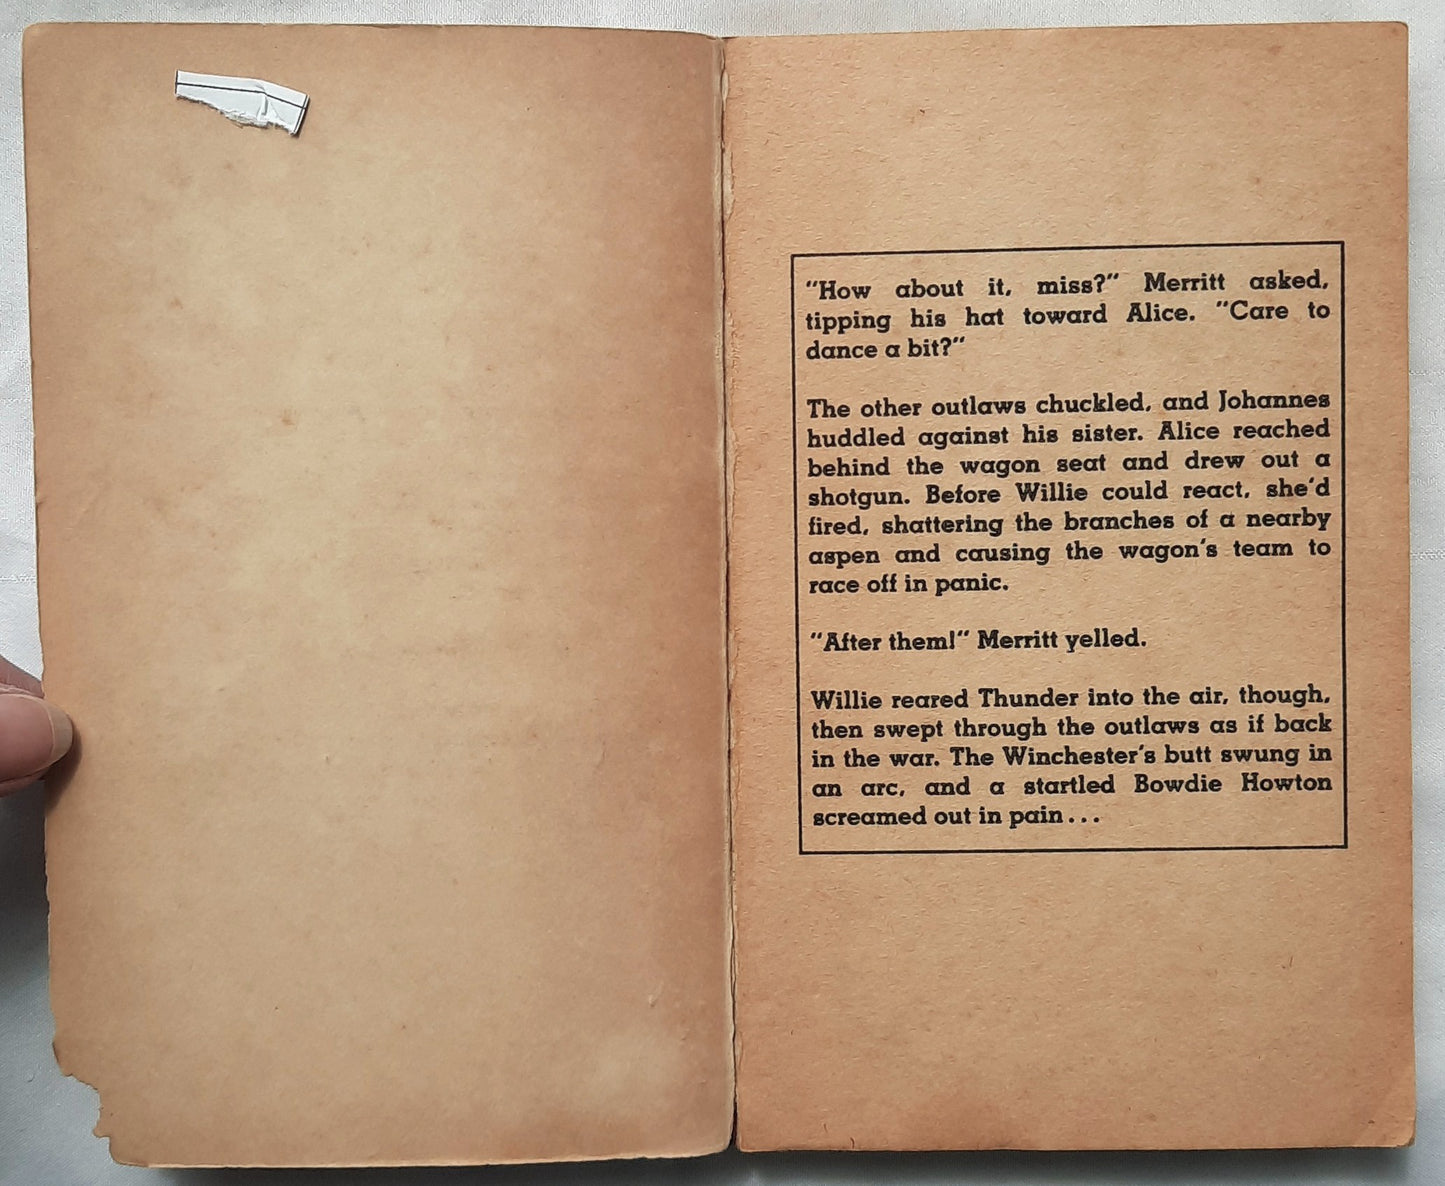 "How about it, miss?" Merritt asked,
tipping his hat toward Alice. "Care to
dance a bit?"
The other outlaws chuckled, and Johannes
huddled against his sister. Alice reached
behind the wagon seat and drew out a
shotgun. Before Willie could react, she'd
fired, shattering the branches of a nearby
aspen and causing the wagon's team to
race off in panic.
"After them!" Merritt yelled.
Willie reared Thunder into the air, though,
then swept through the outlaws as if back
in the war. The Winchester's butt swung in
an arc, and a startled Bowdie Howton
screamed out in pain...